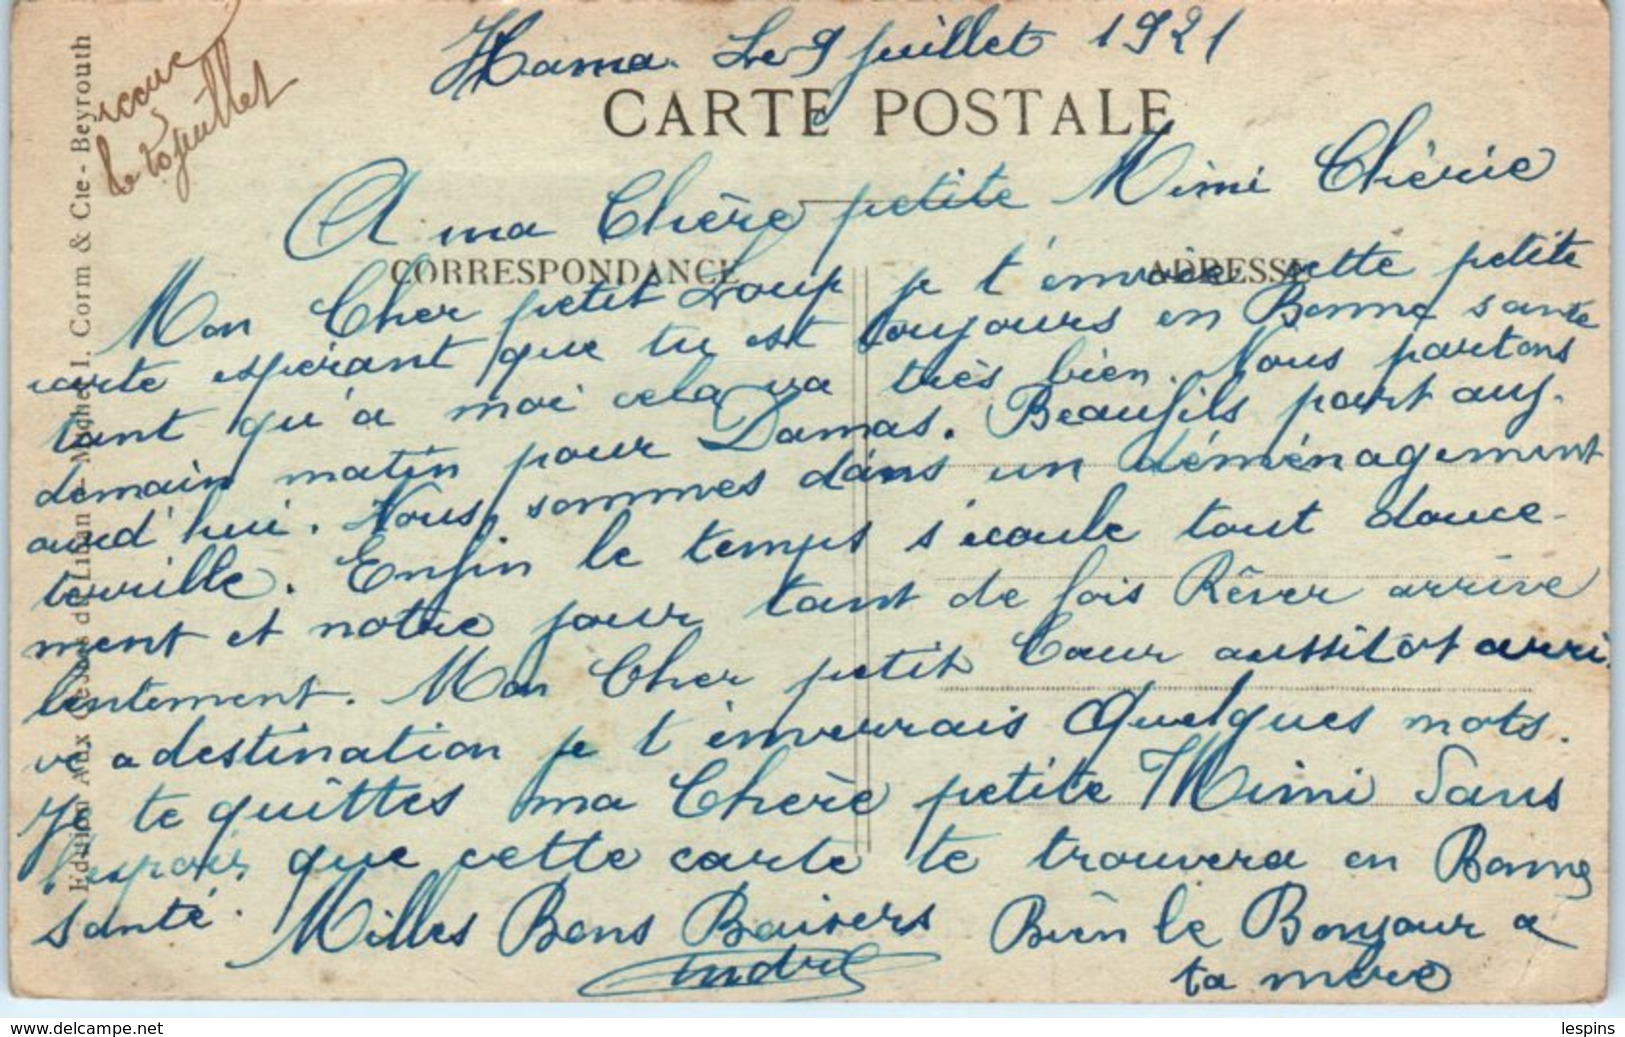 Hama. Le 9 juillet 1921
CARTE POSTALE
A ma Chère petite Mimi Chérie
CORRESPONDANCE
ADRESSE
Mon Cher petit Loup je t'envoie cette petite
carte espérant que tu est toujours en Bonne santé
tant qu'a moi cela va très bien. Nous partons
demain matin pour Damas. Beaufils part auj.
ourd'hui. Nous sommes dans un déménagement
terrille. Enfin le temps s'écoule tout douce-
ment et notre jour tant de fois Rêver arrive
lentement. Mon Cher petit Cœur aussitôt arri
vé a destination je t'enverrais Quelques mots.
Je te quittes ma Chère petite Mimi Sans
l'espoir que cette carte te trouvera en Bonne
santé. Milles Bons Baisers Bien le Bonjour a
André
ta mère
le 20 juillet
Edition Aux Cèdres du Liban - Michel I. Corm & Cie - Beyrouth
www.delcampe.net
lespins